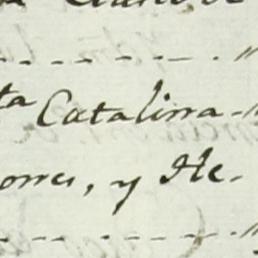 ta Catalina
orres, y He-